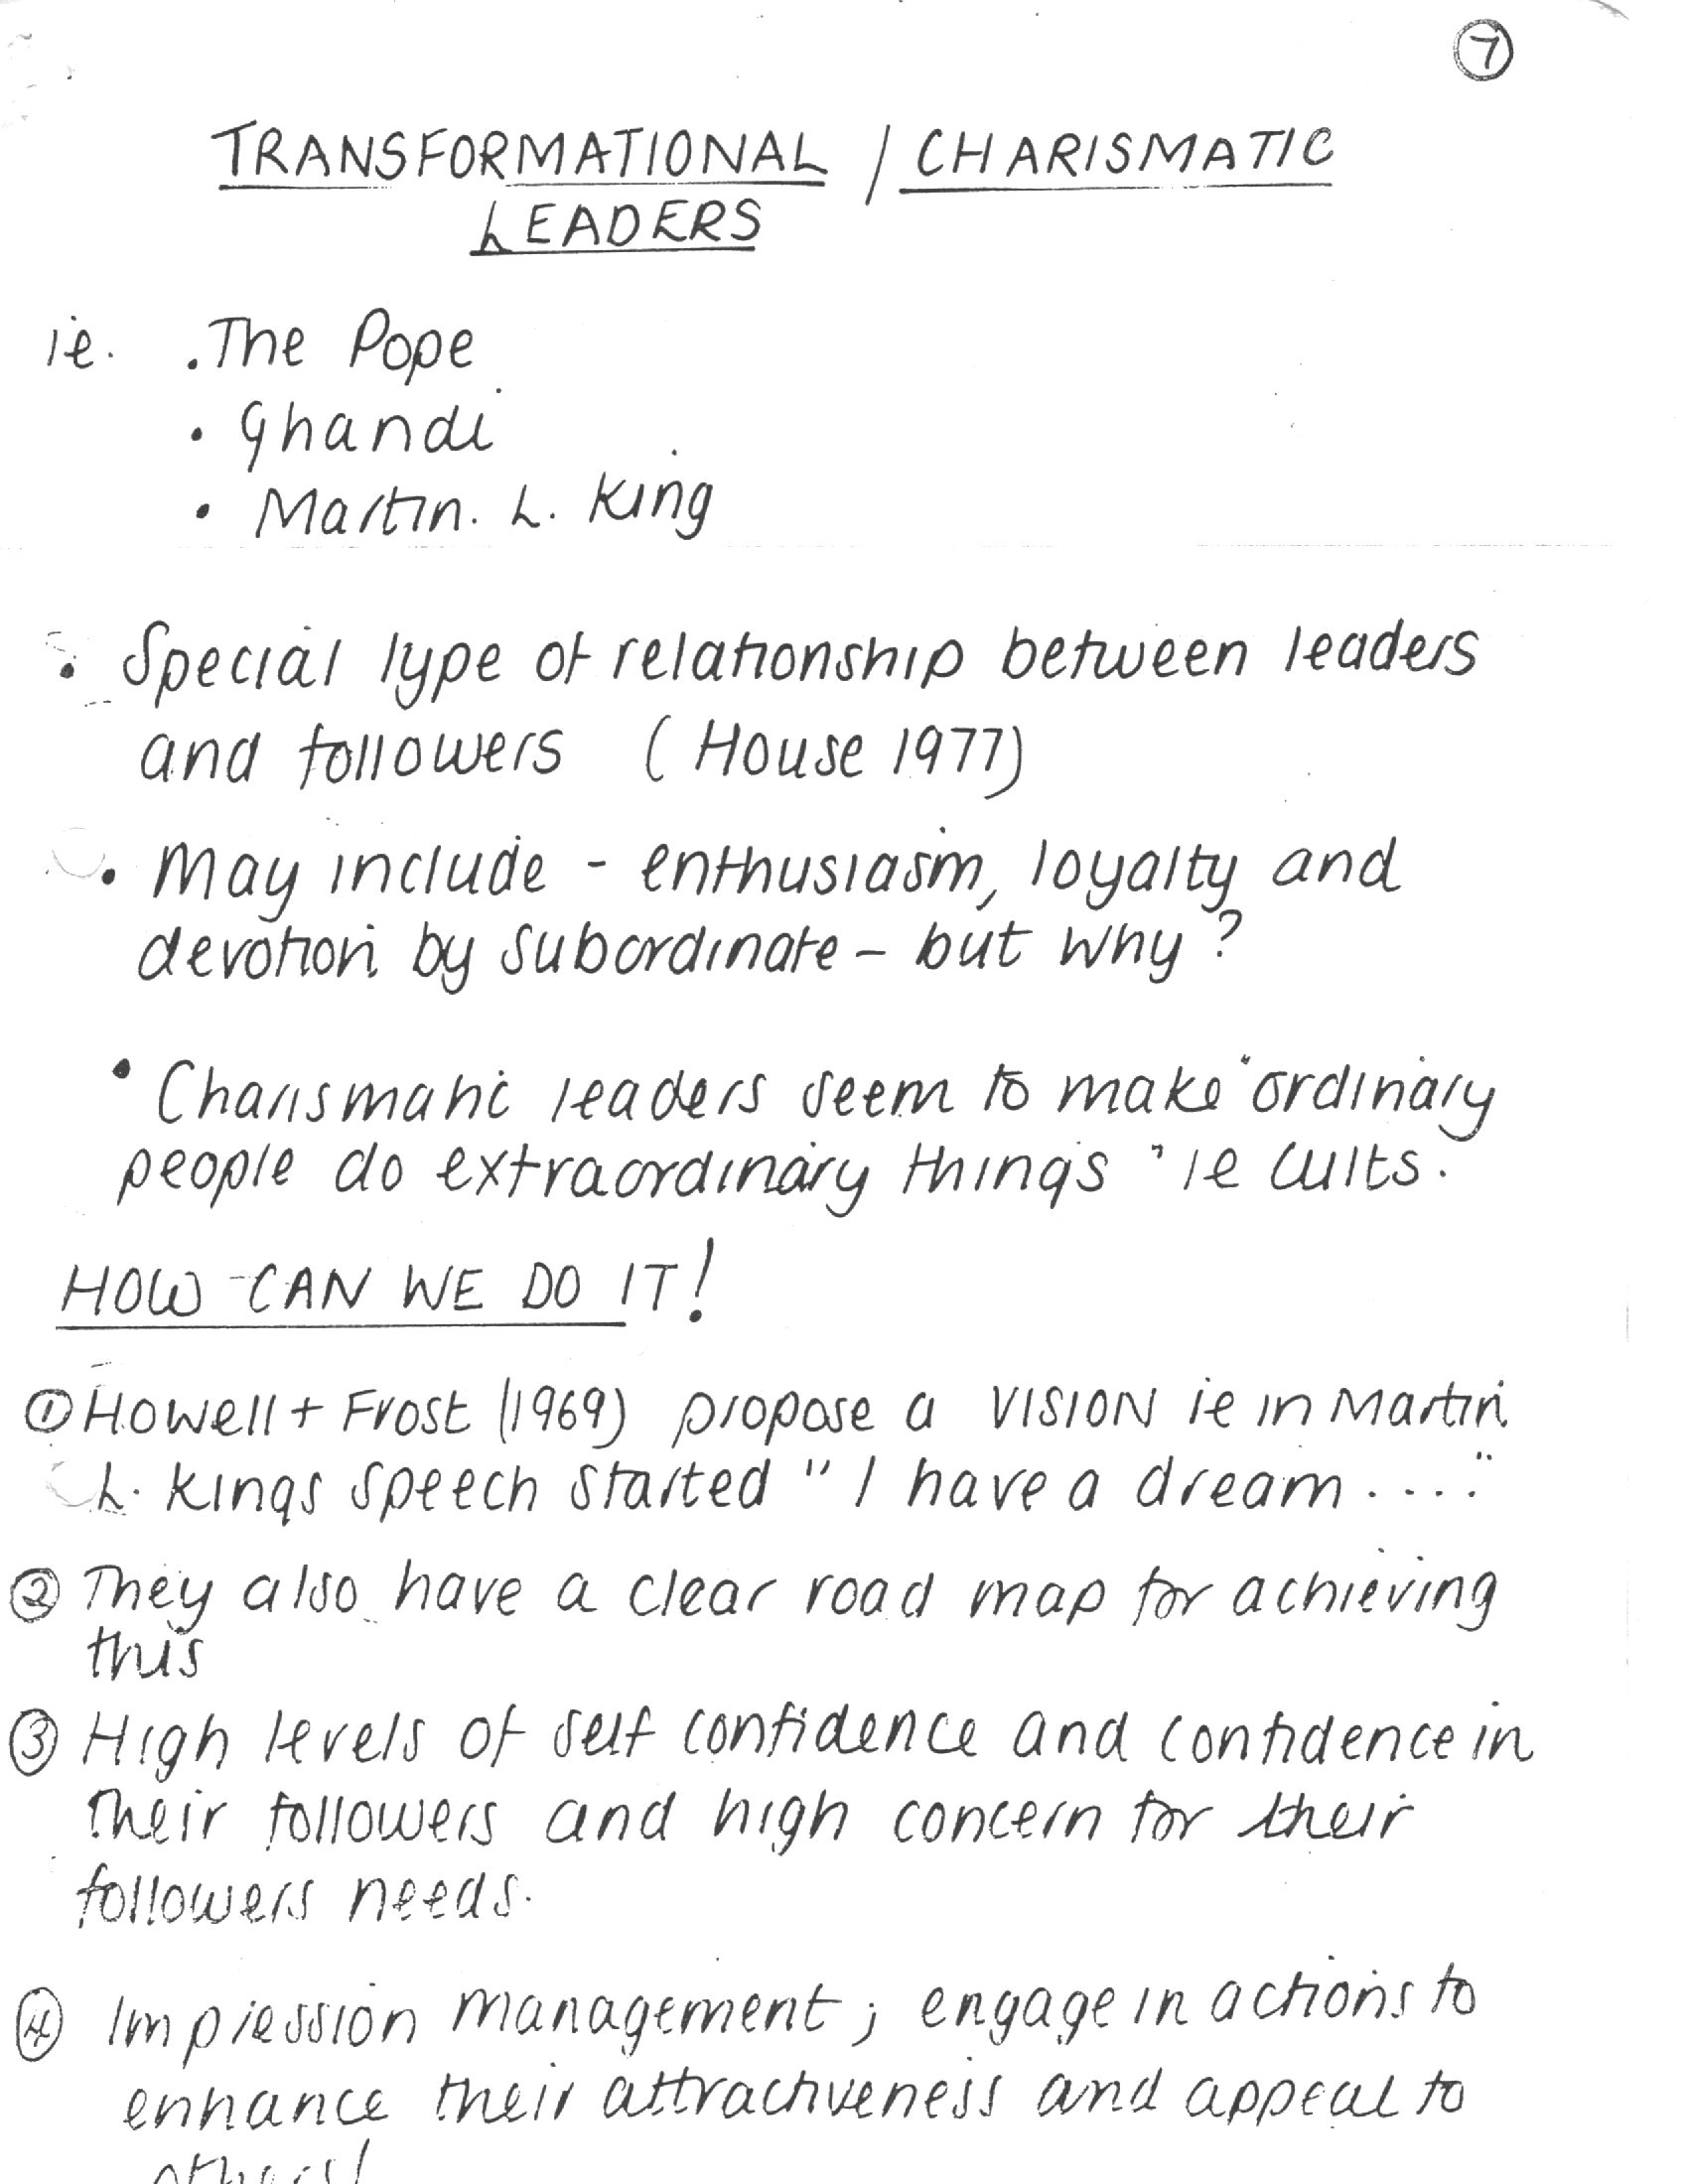 7
TRANSFORMATIONAL / CHARISMATIC
LEADERS
ie. . The Pope
• Ghandi
• Martin. L. King
• Special type of relationship between leaders
and followers ( House 1977)
• May include - enthusiasm, loyalty and
devotion by subordinate - but why?
• Charismatic leaders seem to make "ordinary
people do extraordinary things" ie cults.
HOW CAN WE DO IT!
① Howell + Frost (1969) propose a VISION ie in Martin
L. Kings speech started "I have a dream....."
② They also have a clear road map for achieving
this
③ High levels of self confidence and confidence in
their followers and high concern for their
followers needs.
④ Impression management; engage in actions to
enhance their attractiveness and appeal to
others!